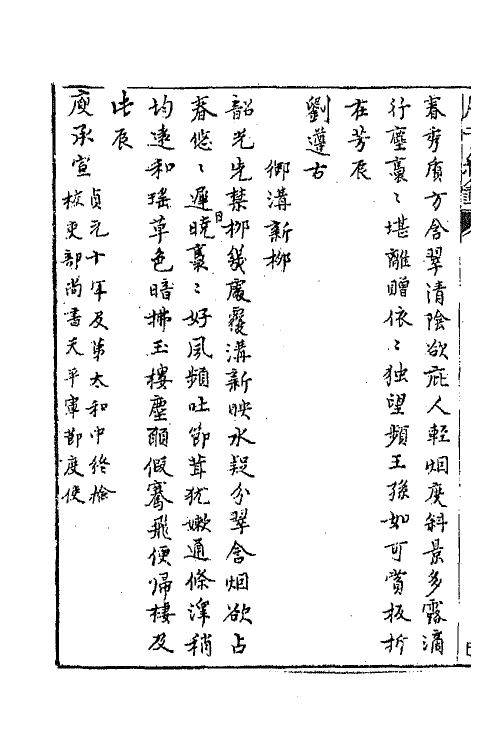 春秀质方含翠清陰欲庇人輕烟度斜景多露滴
行塵裊〻堪離贈依〻独望頻王孫如可賞扳折
在芳辰
劉遵古
御溝新柳
韶光先禁柳幾處覆溝新映水疑分翠含烟欲占
春悠〻遲曉日裊〻好風頻吐節茸犹嫩通條澤稍
均遠和瑶草色暗拂玉樓塵願假騫飛便歸棲及
此辰
庾承宣
貞元十年及第太和中終檢
校吏部尚書天平軍節度使